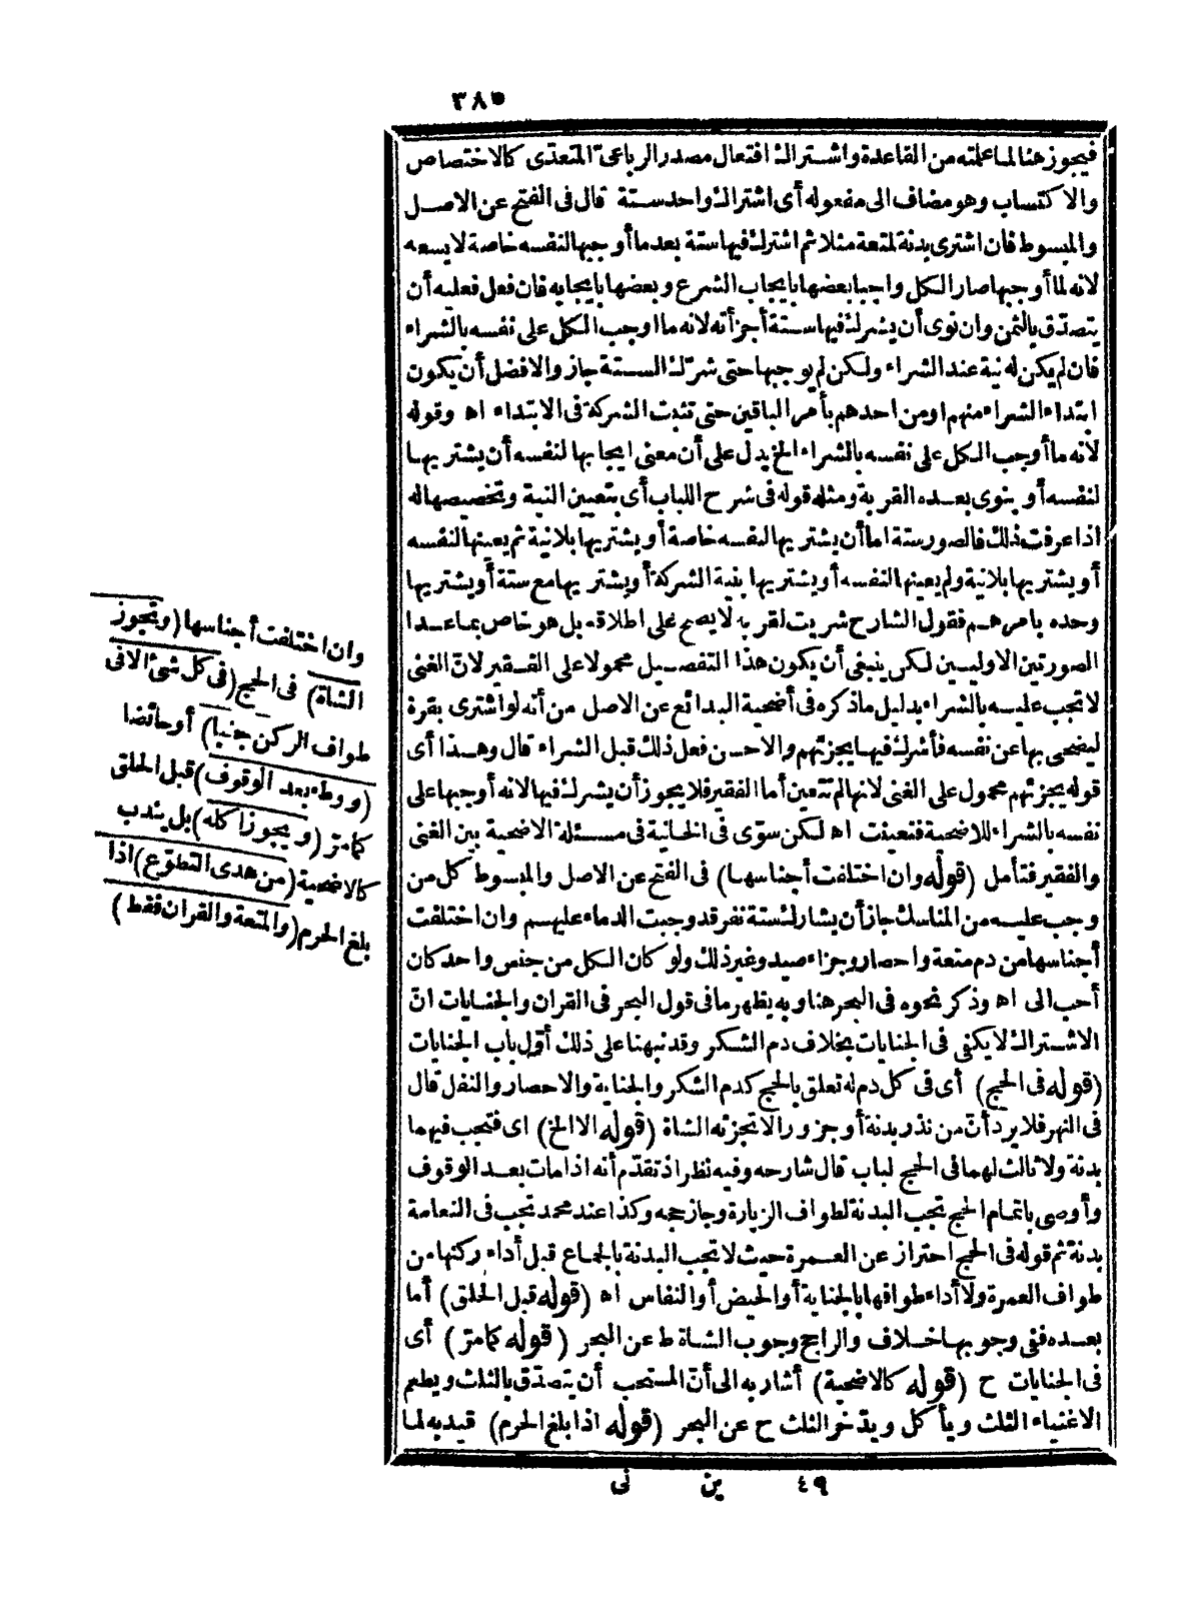 ٣٨٥
فيجوز هنا لما علمته من القاعدة واشتراك افتعال مصدر الرباعىّ المتعدّى كالاختصاص
والاكتساب وهو مضاف الى مفعوله أى اشتراك واحد ستة قال فى الفتح عن الاصل
والمبسوط فان اشترى بدنة لمتعة مثلا ثم اشترك فيها ستة بعدما أوجبها لنفسه خاصة لا يسعه
لانه لما أوجبها صار الكل واجبا بعضها بايجاب الشرع وبعضها بايجابه فان فعل فعليه أن
يتصدّق بالثمن وان نوى أن يشرك فيها ستة أجزأته لانه ما اوجب الكل على نفسه بالشراء
فان لم يكن له نية عند الشراء ولكن لم يوجبها حتى شرّك الستة جاز والافضل أن يكون
ابتداء الشراء منهم او من احدهم بأمر الباقين حتى تثبت الشركة فى الابتداء اه وقوله
لانه ما أوجب الكل على نفسه بالشراء الخ يدل على أن معنى ايجابها لنفسه أن يشتريها
لنفسه أو ينوى بعده القربة ومثله قوله فى شرح اللباب أى بتعيين النية وتخصيصها له
اذا عرفت ذلك فالصور ستة اما أن يشتريها لنفسه خاصة أو يشتريها بلا نية ثم يعينها لنفسه
أو يشتريها بلا نية ولم يعينها لنفسه أو يشتريها بنية الشركة أو يشتريها مع ستة أو يشتريها
وحده بامرهم فقول الشارح شريت لقربة لا يصح على اطلاقه بل هو خاص بما عدا
الصورتين الاوليين لكن ينبغى أن يكون هذا التفصيل محمولا على الفقير لانّ الغنى
لا تجب عليه بالشراء بدليل ما ذكره فى أضحية البدائع عن الاصل من أنه لو اشترى بقرة
ليضحى بها عن نفسه فأشرك فيها يجزئهم والاحسن فعل ذلك قبل الشراء قال وهذا أى
قوله يجزئهم محمول على الغنى لانها لم تتعين أما الفقير فلا يجوز أن يشرك فيها لانه أوجبها على
نفسه بالشراء للاضحية فتعينت اه لكن سوّى فى الخانية فى مسئلة الاضحية بين الغنى
والفقير فتأمل (قوله وان اختلفت أجناسها) فى الفتح عن الاصل والمبسوط كل من
وجب عليه من المناسك جاز أن يشارك ستة نفر قد وجبت الدماء عليهم وان اختلفت
أجناسها من دم متعة واحصار وجزاء صيد وغير ذلك ولو كان الكل من جنس واحد كان
أحب الى اه وذكر نحوه فى البحر هنا وبه يظهر ما فى قول البحر فى القران والجنايات انّ
الاشتراك لا يكفى فى الجنايات بخلاف دم الشكر وقد نبهنا على ذلك أوّل باب الجنايات
(قوله فى الحج) أى فى كل دم له تعلق بالحج كدم الشكر والجناية والاحصار والنفل قال
فى النهر فلا يرد أنّ من نذر بدنة أو جزورا لا تجزئه الشاة (قوله الا الخ) اى فتجب فيهما
بدنة ولا ثالث لهما فى الحج لباب قال شارحه وفيه نظر اذ تقدّم أنه اذا مات بعد الوقوف
وأوصى باتمام الحج تجب البدنة لطواف الزيارة وجاز حجه وكذا عند محمد تجب فى النعامة
بدنة ثم قوله فى الحج احتراز عن العمرة حيث لا تجب البدنة بالجماع قبل أداء ركنها من
طواف العمرة ولا أداء طوافها بالجنابة أو الحيض أو النفاس اه (قوله قبل الحلق) أما
بعده ففى وجوبها خلاف والراجح وجوب الشاة ط عن البحر (قوله كما مرّ) أى
فى الجنايات ح (قوله كالاضحية) أشار به الى أنّ المستحب أن يتصدّق بالثلث ويطعم
الاغنياء الثلث ويأكل ويدّخر الثلث ح عن البحر (قوله اذا بلغ الحرم) قيد به لما
٤٩ ين نى
وان اختلفت أجناسها (وتجوز
الشاة) فى الحج (فى كل شئ الا فى
طواف الركن جنبا) أو حائضا
(ووطء بعد الوقوف) قبل الحلق
كما مرّ (ويجوز اكله) بل يندب
كالاضحية (من هدى التطوّع) اذا
بلغ الحرم (والمتعة والقران فقط)